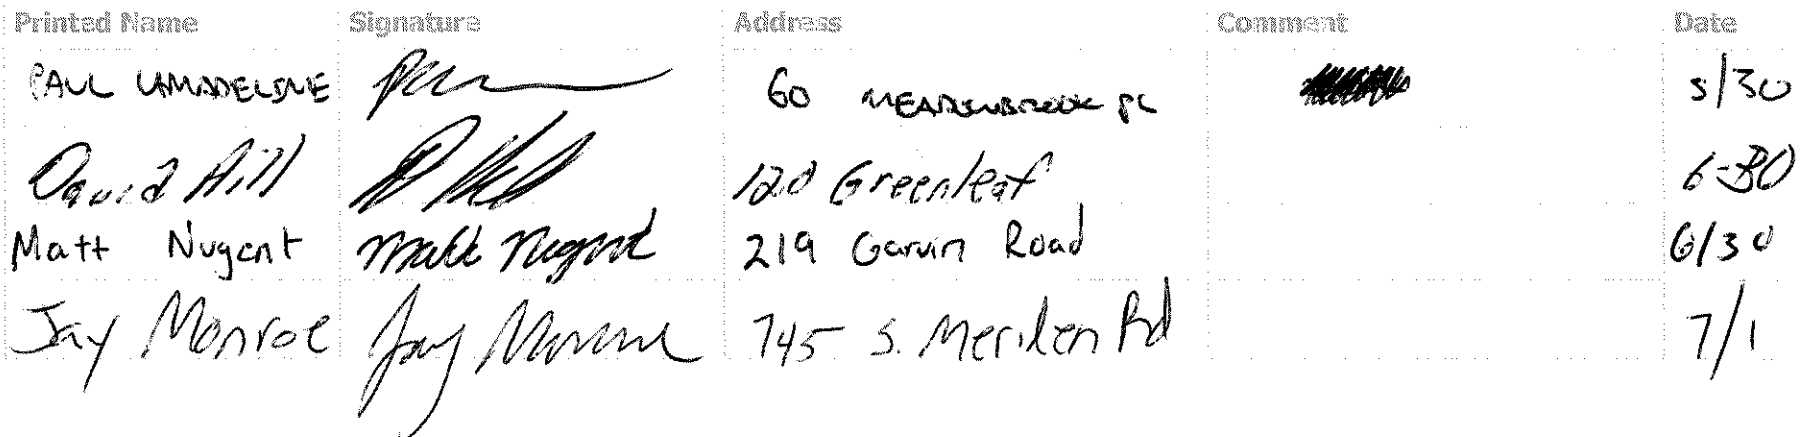 Printed Name Signature Address Comment Date
PAUL LAMADELEINE 60 MEADOWBROOK PL 5/30
David Hill D Hill 120 Greenleaf 6-30
Matt Nugent Matt Nugent 219 Garvin Road 6/30
Jay Monroe Jay Monroe 745 S. Meriden Rd 7/1